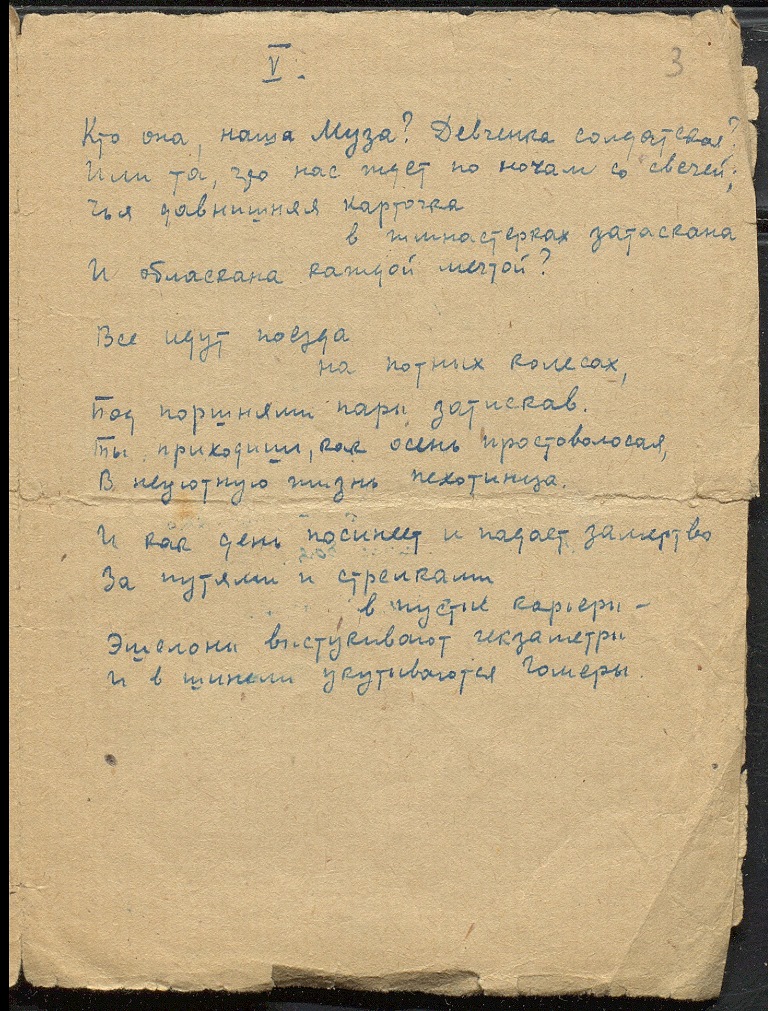 V.
3
Кто она, наша Муза? Девченка солдатская?
Или та, что нас ждет по ночам со свечей,
Чья давнишняя карточка
в гимнастерках затаскана
И обласкана каждой мечтой?
Все идут поезда
на потных колесах,
Под поршнями пары затискав.
Ты приходишь, как осень простоволосая,
В неуютную жизнь пехотинца.
И как день посинеет и падает замертво
За путями и стрелками
в пустые карьеры –
Эшелоны выстукивают гекзаметры
И в шинели укутываются Гомеры.